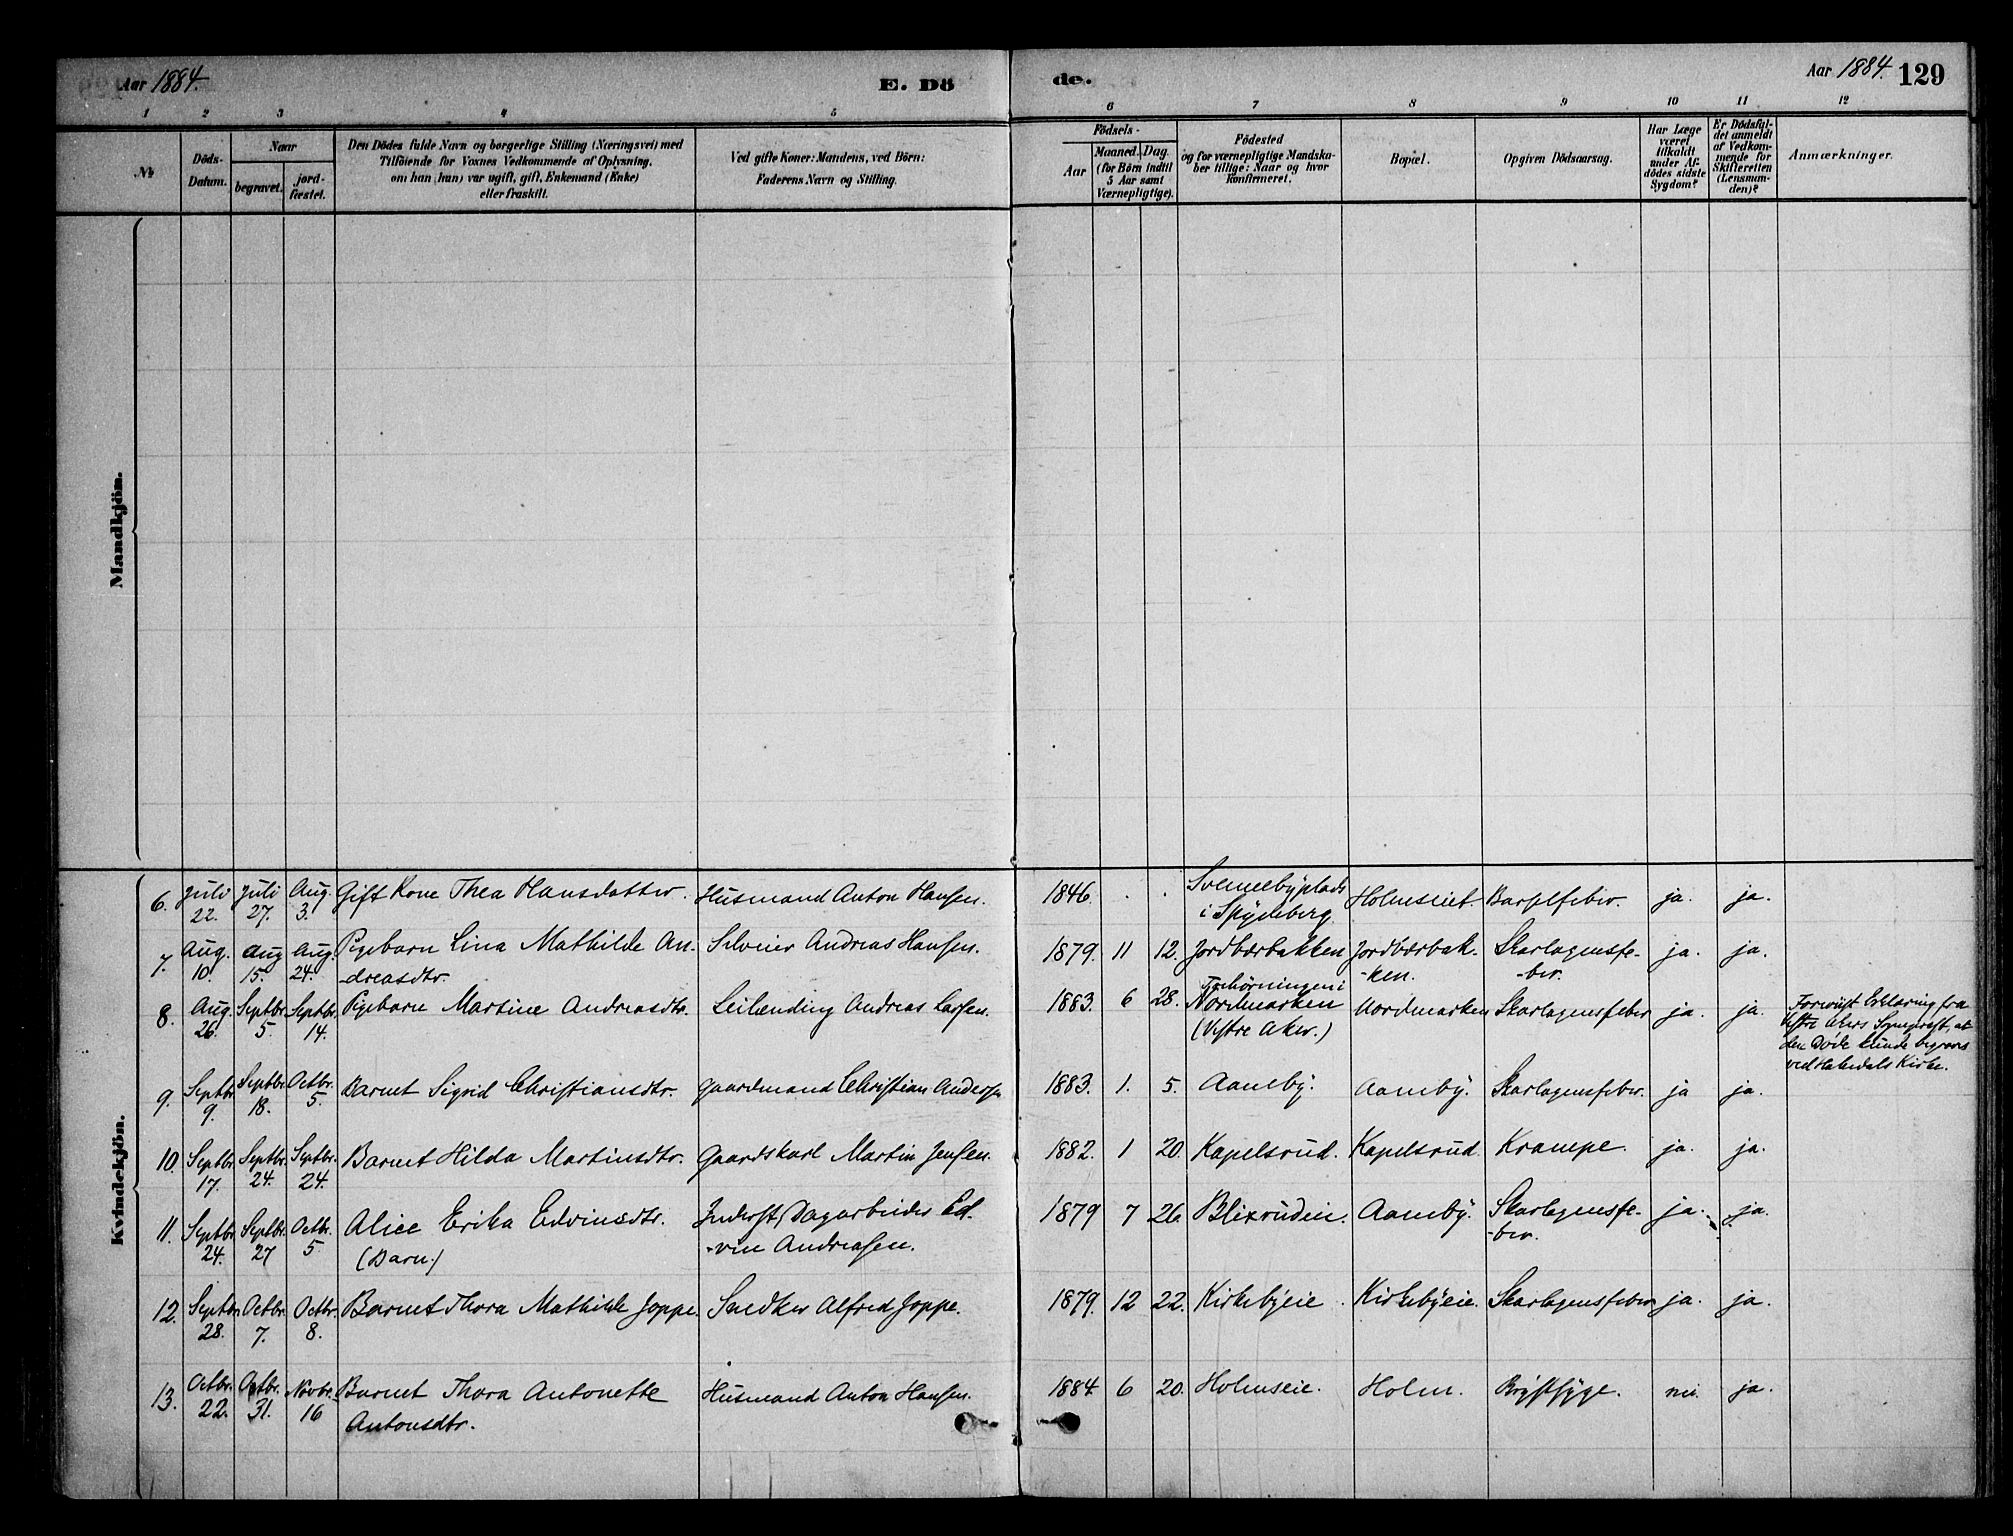 Aar 1884.
E. Dö
de.
Aar 1884. 129
1 2 3 4 5 6 7 8 9 10 11 12
No
Döds-
Datum.
Naar
begravet.
jord-
fæstet.
Den Dödes fulde Navn og borgerlige Stilling (Næringsvei) med
Tilföiende for Voxnes Vedkommende af Oplysning,
om han (hun) var ugift, gift, Enkemand (Enke)
eller fraskilt.
Ved gifte Koner: Mandens, ved Börn:
Faderens Navn og Stilling.
Födsels-
Aar
Maaned. Dag.
(for Börn indtil
5 Aar samt
Værnepligtige).
Födested
og for værnepligtige Mandska-
ber tillige: Naar og hvor
Konfirmeret.
Bopæl.
Opgiven Dödsaarsag.
Har Læge
været
tilkaldt
under Af-
dödes sidste
Sygdom?
Er Dödsfal-
det anmeldt
af Vedkom-
mende for
Skifteretten
(Lensman-
den)?
Anmærkninger.
Mandkjön.
Kvindekjön.
6. Juli 22. Juli 27. Aug. 3. Gift Kone Thea Hansdatter. Husmand Anton Hansen. 1846. . . Svenneby plads
i Spydeberg. Holmseiet. Barselfeber. ja. ja.
7. Aug. 10. Aug 15. Aug. 24. Pigebarn Lina Mathilde An-
-dreasdtr. Selveier Andreas Hansen. 1879. 11 12. Jordbærbakken Jordbærbak-
-ken. Skarlagensfe-
-ber. ja. ja.
8. Aug. 26. Septbr. 5. Septbr. 14. Pigebarn Martine Andreasdtr. Leilænding Andreas Larsen. 1883. 6 28. Tørhörningen i
Nordmarken
(Vestre Aker.) Nordmarken Skarlagensfeber ja. ja. Forevist Erklæring fra
Vestre Akers Sogneprest, at
den Døde kunde begraves
ved Hakedals Kirke.
9. Septbr. 9. Septbr. 18. Octbr. 5. Barnet Sigrid Christiansdtr. Gaardmand Christian Andersen 1883. 1. 5. Aamby. Aamby. Skarlagensfeber. ja ja.
10. Septbr. 17. Septbr. 24. Septbr. 24. Barnet Hilda Martinsdtr. Gaardskarl Martin Jensen. 1882. 1 20. Kapelsrud. Kapelsrud. Krampe. ja. ja.
11. Septbr. 24. Septbr. 27 Octbr. 5 Alice Erika Edvinsdtr.
(Barn) Inderst, Dagarbeider Ed-
-vin Andreasen. 1879 7 26 Blixrudeie. Aamby. Skarlagensfe-
-ber. ja. ja.
12. Septbr. 28. Octbr. 7. Octbr. 8. Barnet Thora Mathilde Joppe. Snedker Alfred Joppe. 1879. 12 22. Kirkebyeie. Kirkebyeie. Skarlagensfeber ja. ja.
13. Octbr. 22. Octbr. 31. Novbr. 16 Barnet Thora Antonette
Antonsdtr. Husmand Anton Hansen. 1884 6 20. Holmseie. Holm. Brystsyge. nei. ja.